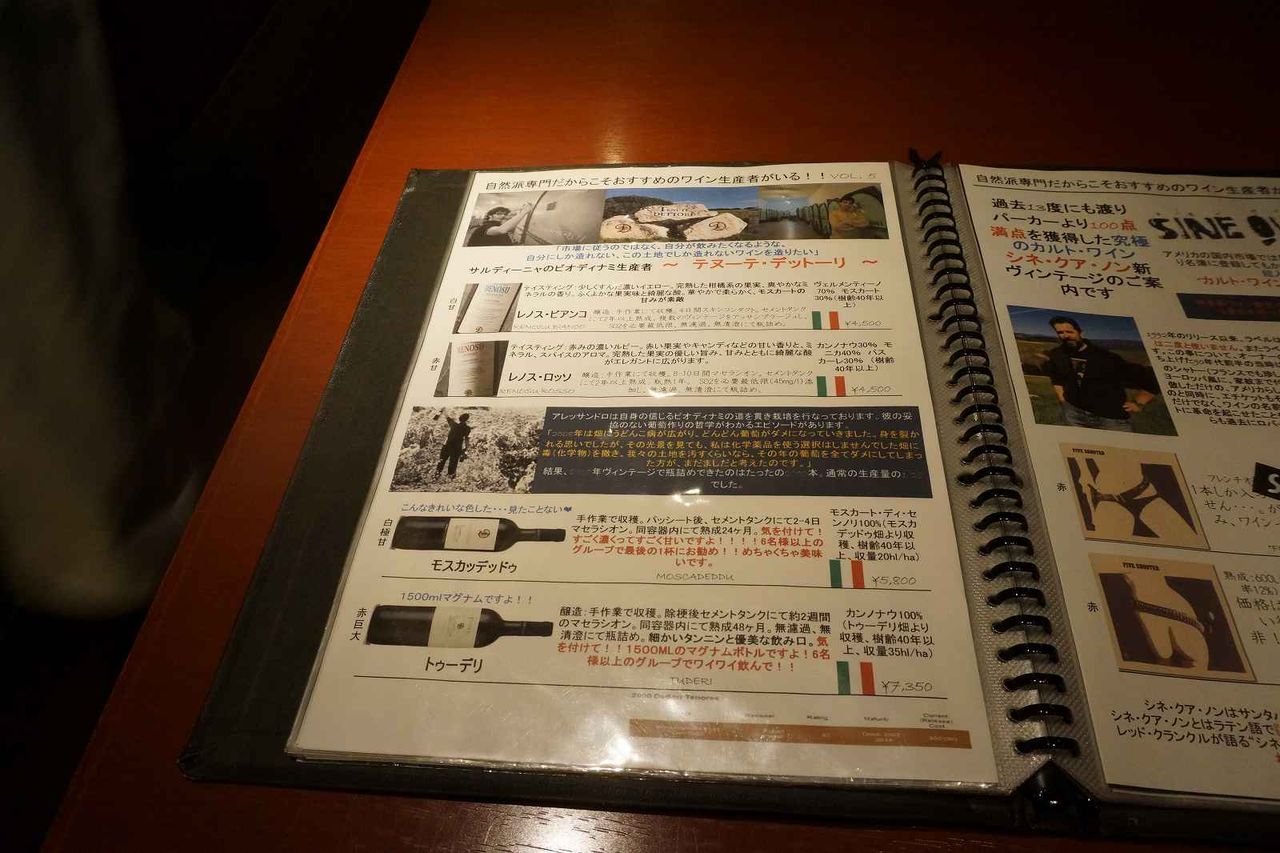 自然派専門だからこそおすすめのワイン生産者がいる！！VOL. 5
TENUTE
DETTORI
「市場に従うのではなく、自分が飲みたくなるような。
自分にしか造れない、この土地でしか造れないワインを造りたい」
サルディーニャのビオディナミ生産者 ～ テヌーテ・デットーリ ～
白甘
RENOSU
テイスティング：少しくすんだ濃いイエロー。完熟した柑橘系の果実、爽やかなミ
ネラルの香り。ふくよかな果実味と綺麗な酸。華やかで柔らかく、モスカートの
甘みが素敵
レノス・ビアンコ
RENOSU BIANCO
醸造：手作業にて収穫。4日間スキンコンタクト。セメントタンク
にて2年以上熟成。複数のヴィンテージをアッサンブラージュし、
SO2を必要最低限、無濾過、無清澄にて瓶詰め。
ヴェルメンティーノ
70% モスカート
30%（樹齢40年以
上）
¥4,500
赤甘
RENOSU
テイスティング：赤みの濃いルビー。赤い果実やキャンディなどの甘い香りと、ミ
ネラル、スパイスのアロマ。完熟した果実の優しい旨み、甘みとともに綺麗な酸
がエレガントに広がります。
レノス・ロッソ
RENOSU ROSSO
醸造：手作業にて収穫。8-10日間マセラシオン。セメントタンク
にて2年以上熟成、瓶熟1年。 SO2を必要最低限(45mg/l)添
加し、無濾過、無清澄にて瓶詰め。
カンノナウ30% モ
ニカ40% パス
カーレ30%（樹齢
40年以上）
¥4,500
アレッサンドロは自身の信じるビオディナミの道を貫き栽培を行なっております。彼の妥
協のない葡萄作りの哲学がわかるエピソードがあります。
年は畑にうどんこ病が広がり、どんどん葡萄がダメになっていきました。身を裂か
れる思いでしたが、その光景を見ても、私は化学薬品を使う選択はしませんでした畑に
毒（化学物）を撒き、我々の土地を汚すくらいなら、その年の葡萄を全てダメにしてしまっ
た方が、まだましだと考えたのです。」
結果、 年ヴィンテージで瓶詰めできたのはたったの 本。通常の生産量の
でした。
こんなきれいな色した・・・見たことない♥
白極甘
モスカッデッドゥ
手作業で収穫。パッシート後、セメントタンクにて2-4日
マセラシオン。同容器内にて熟成24ヶ月。気を付けて！
すごく濃くってすごく甘いですよ！！！！6名様以上の
グループで最後の1杯にお勧め！！めちゃくちゃ美味
いです。
MOSCADEDDU
モスカート・ディ・セ
ンノリ100%（モスカ
デッドゥ畑より収
穫、樹齢40年以
上、収量20hl/ha）
¥5,800
1500mlマグナムですよ！！
赤巨大
トゥーデリ
醸造：手作業で収穫。除梗後セメントタンクにて約2週間
のマセラシオン。同容器内にて熟成48ヶ月。無濾過、無
清澄にて瓶詰め。細かいタンニンと優美な飲み口。気
を付けて！！1500MLのマグナムボトルですよ！6名
様以上のグループでワイワイ飲んで！！
TUDERI
カンノナウ100%
（トゥーデリ畑より
収穫、樹齢40年以
上、収量35hl/ha）
¥7,350
Rating
Maturity
Current
(Release)
Cost
自然派専門だからこそおすすめのワイン生産者
過去13度にも渡り
パーカーより100点
満点を獲得した究極
のカルト・ワイン
シネ・クア・ノン新
ヴィンテージのご案
内です
SINE Q
アメリカの国内市場では
カルト・ワイ
は二度と使いません。
赤
FIVE SHOOTER
フレンチ
1本しか入
せん・・・。が
み、ワイン
赤
FIVE SHOOTER
熟成：600L
率12%）
価格は
い
非
シネ・クア・ノンはサンタ
シネ・クア・ノンとはラテン語で
レッド・クランクルが語る“シネ